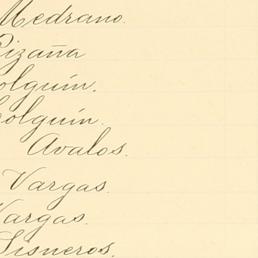 Medrano.
Rizaña
Holguín.
Holguín.
Avalos.
Vargas.
Vargas.
Sisneros.